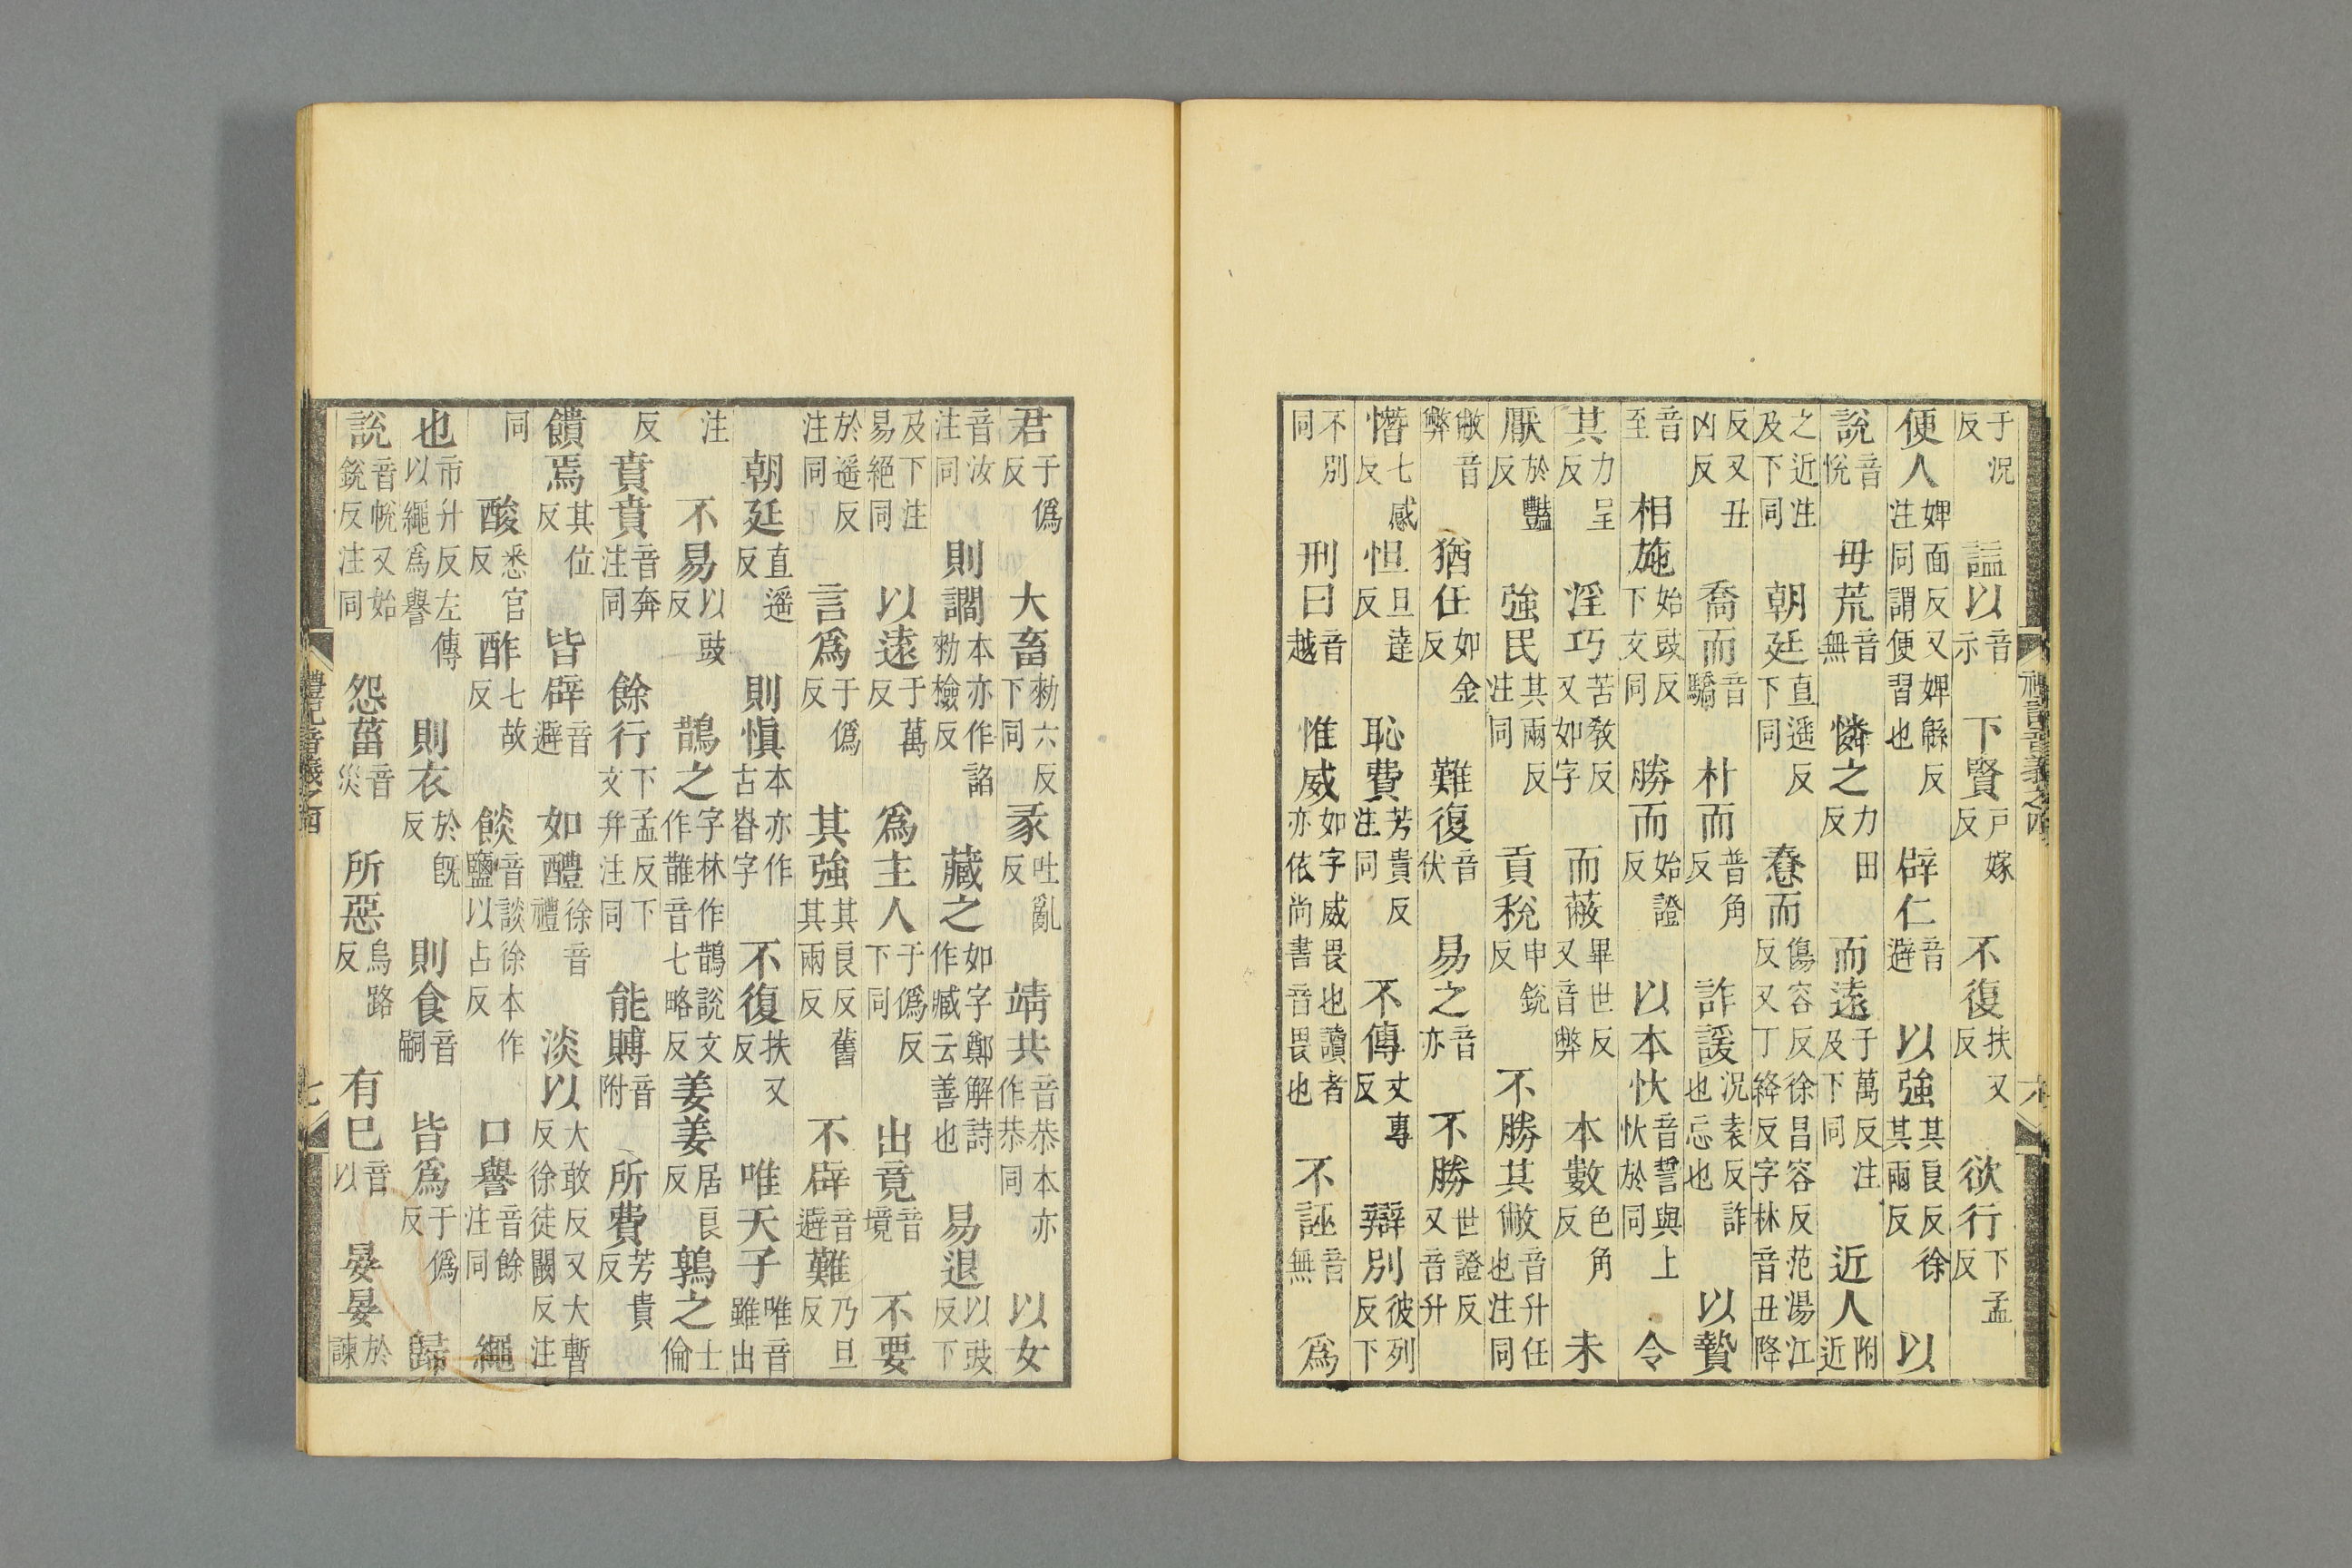 于況反謚以音示下賢戶嫁反不復扶又反欲行下孟反
便人婢面反又婢緜反注同謂便習也辟仁音避以強其良反徐其兩反以
說音悅毋荒音無憐之力田反而遠于萬反注及下同近人附近
之近注及下同朝廷直遥反下同惷而傷容反徐昌容反范湯江反又丁絳反字林音丑降
反又丑凶反喬而音驕朴而普角反詐諼況袁反詐也忘也以贄
音至相施始豉反下文同勝而始證反以本忕音誓與上忕於同令
其力呈反淫巧苦教反又如字而蔽畢世反又音弊本數色角反未
厭於豔反強民其兩反注同貢稅申銳反不勝其敝音升任也注同
敝音弊猶任如金反難復音伏易之音亦不勝世證反又音升
憯七感反怛旦達反恥費芳貴反注同不傳丈專反辯別彼列反下
不別同刑曰音越惟威如字威畏也讀者亦依尚書音畏也不誣音無爲
禮記音義之四
六
君于僞反大畜勑六反下同彖吐亂反靖共音恭本亦作恭同以女
音汝注同則讇本亦作謟勑檢反藏之如字鄭解詩作臧云善也易退以豉反下
及下注易絕同以遠于萬反爲主人于僞反下同出竟音境不要
於遥反注同言爲于僞反其強其良反舊其兩反不辟音避難乃旦反
朝廷直遥反則愼本亦作古昚字不復扶又反唯天子唯音雖出
注不易以豉反鵲之字林作鵲說文作䧿音七略反姜姜居良反鶉之士倫
反賁賁音奔注同餘行下孟反下文并注同能賻音附所費芳貴反
饋焉其位反皆辟音避如醴徐音禮淡以大敢反又大暫反徐徒闞反注
同酸悉官反酢七故反餤音談徐本作鹽以占反口譽音餘注同繩
也市升反左傳以繩爲譽則衣於旣反則食音嗣皆爲于僞反歸
說音帨又始銳反注同怨菑音災所惡烏路反有已音以晏晏於諫
禮記音義之四
七